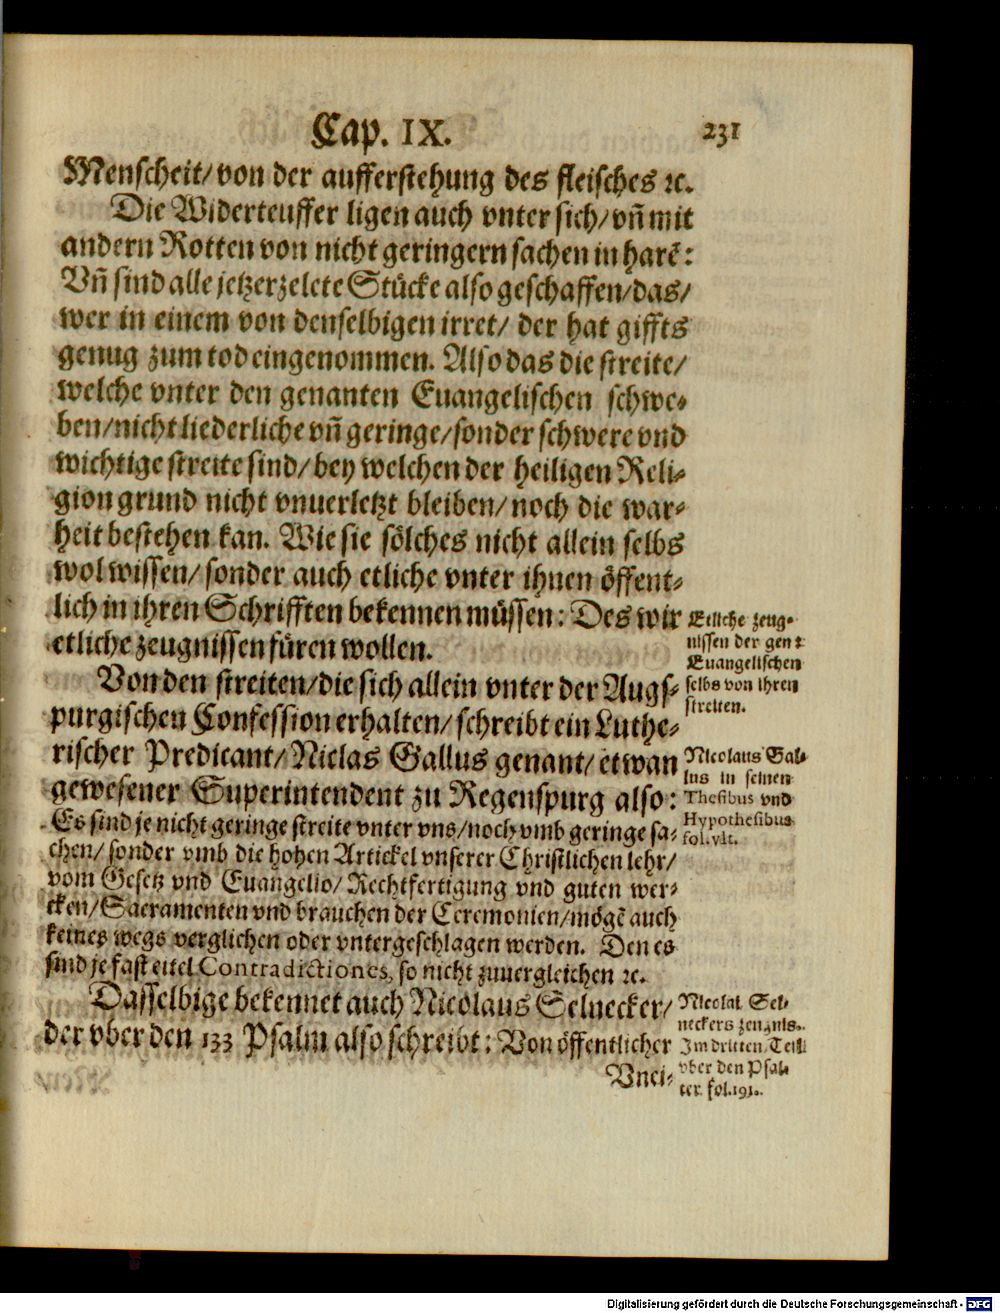 Cap. IX. 231
Menscheit/ von der aufferstehung des fleisches ꝛc.
Die Widerteuffer ligen auch vnter sich/ vñ mit
andern Rotten von nicht geringern sachen in harẽ:
Vñ sind alle jetzerzelete Stücke also geschaffen/ das/
wer in einem von denselbigen irret/ der hat giffts
genug zum tod eingenommen. Also das die streite/
welche vnter den genanten Euangelischen schwe-
ben/ nicht liederliche vñ geringe/ sonder schwere vnd
wichtige streite sind/ bey welchen der heiligen Reli-
gion grund nicht vnuerletzt bleiben/ noch die war-
heit bestehen kan. Wie sie sölches nicht allein selbs
wol wissen/ sonder auch etliche vnter ihnen öffent-
lich in ihren Schrifften bekennen müssen: Des wir
etliche zeugnissen füren wollen.
Etliche zeug-
nissen der gen:
Euangelischen
selbs von ihren
streiten.
Von den streiten/ die sich allein vnter der Augs-
purgischen Confession erhalten/ schreibt ein Luthe-
rischer Predicant/ Niclas Gallus genant/ etwan
gewesener Superintendent zu Regenspurg also:
Nicolaus Gal-
lus in seinen
Thesibus vnd
Hypothesibus
fol. vlt.
Es sind je nicht geringe streite vnter vns/ noch vmb geringe sa-
chen/ sonder vmb die hohen Artickel vnserer Christlichen lehr/
vom Gesetz vnd Euangelio/ Rechtfertigung vnd guten wer-
cken/ Sacramenten vnd brauchen der Ceremonien/ mögẽ auch
keines wegs verglichen oder vntergeschlagen werden. Den es
sind je fast eitel Contradictiones, so nicht zuuergleichen ꝛc.
Dasselbige bekennet auch Nicolaus Selnecker/
der vber den 133 Psalm also schreibt: Von öffentlicher
Nicolai Sel-
neckers zeugnis.
Im dritten Teil
vber den Psal-
ter. fol. 191.
Vnei-
Digitalisierung gefördert durch die Deutsche Forschungsgemeinschaft - DFG